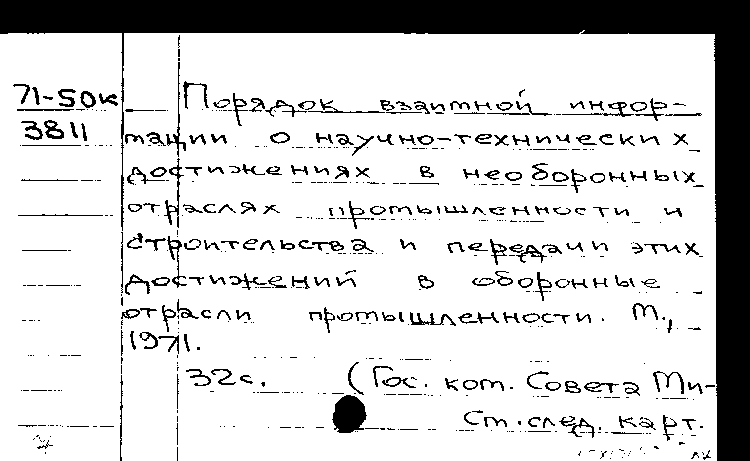 71-50к Порядок взаимной инфор-
3811 мации о научно-технических
достижениях в необоронных
отраслях промышленности и
строительства и передачи этих
достижений в оборонные
отрасли промышленности. М.,
1971.
32с. (Гос. ком. Совета Ми-
См. след. карт.